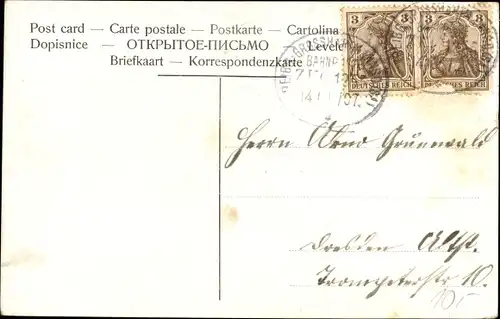 Post card — Carte postale — Postkarte — Cartolina
Dopisnice — ОТКРЫТОЕ-ПИСЬМО — Levele
Briefkaart — Korrespondenzkarte
3 3
3 3
DEUTSCHES REICH DEUTSCHES REICH
GROSSH
BAHNP
ZUG
Herrn Arno Grünewald
Dresden Altst.
Trompeterstr 10.